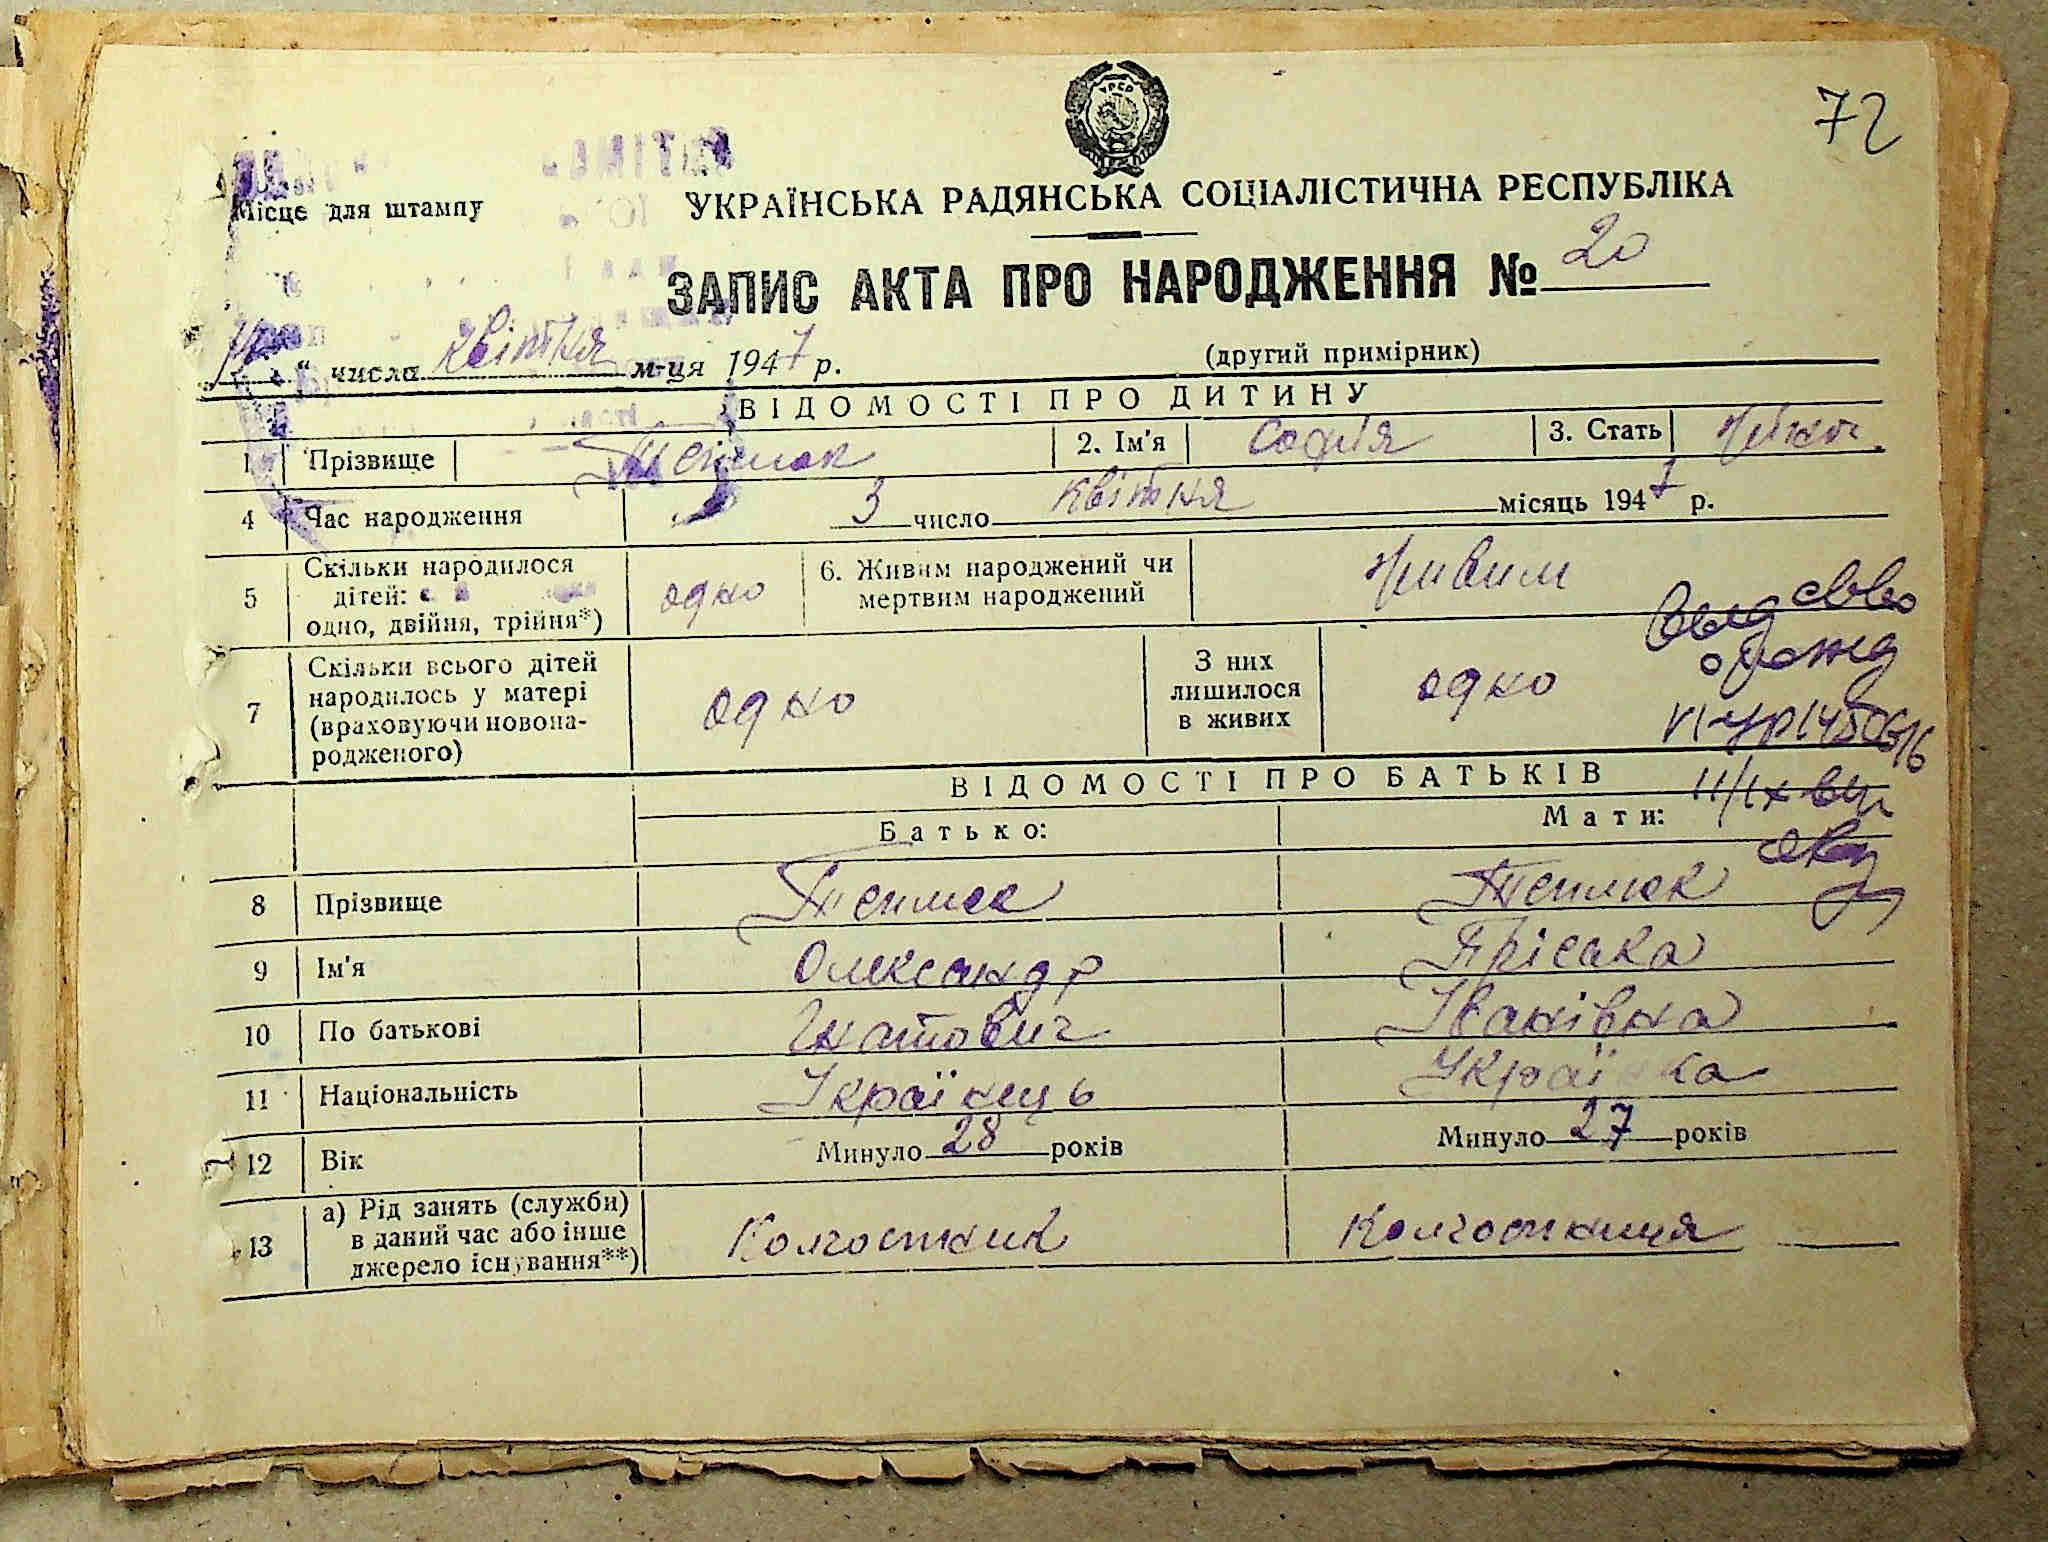 72
УРСР
Місце для штампу
УКРАЇНСЬКА РАДЯНСЬКА СОЦІАЛІСТИЧНА РЕСПУБЛІКА
ЗАПИС АКТА ПРО НАРОДЖЕННЯ № 20
" числа квітня м-ця 1947 р.
(другий примірник)
ВІДОМОСТІ ПРО ДИТИНУ
1 Прізвище 2. Ім'я Софія 3. Стать
4 Час народження 3 число квітня місяць 1947 р.
5 Скільки народилося дітей: одно, двійня, трійня*) одно 6. Живим народжений чи мертвим народжений Живим
7 Скільки всього дітей народилось у матері (враховуючи новонародженого) одно З них лишилося в живих одно
ВІДОМОСТІ ПРО БАТЬКІВ
Батько: Мати:
8 Прізвище Теплюк Теплюк
9 Ім'я Олександр Пріська
10 По батькові Гнатович Іванівна
11 Національність Українець Українка
12 Вік Минуло 28 років Минуло 27 років
13 а) Рід занять (служби) в даний час або інше джерело існування**) Колгоспник Колгоспниця